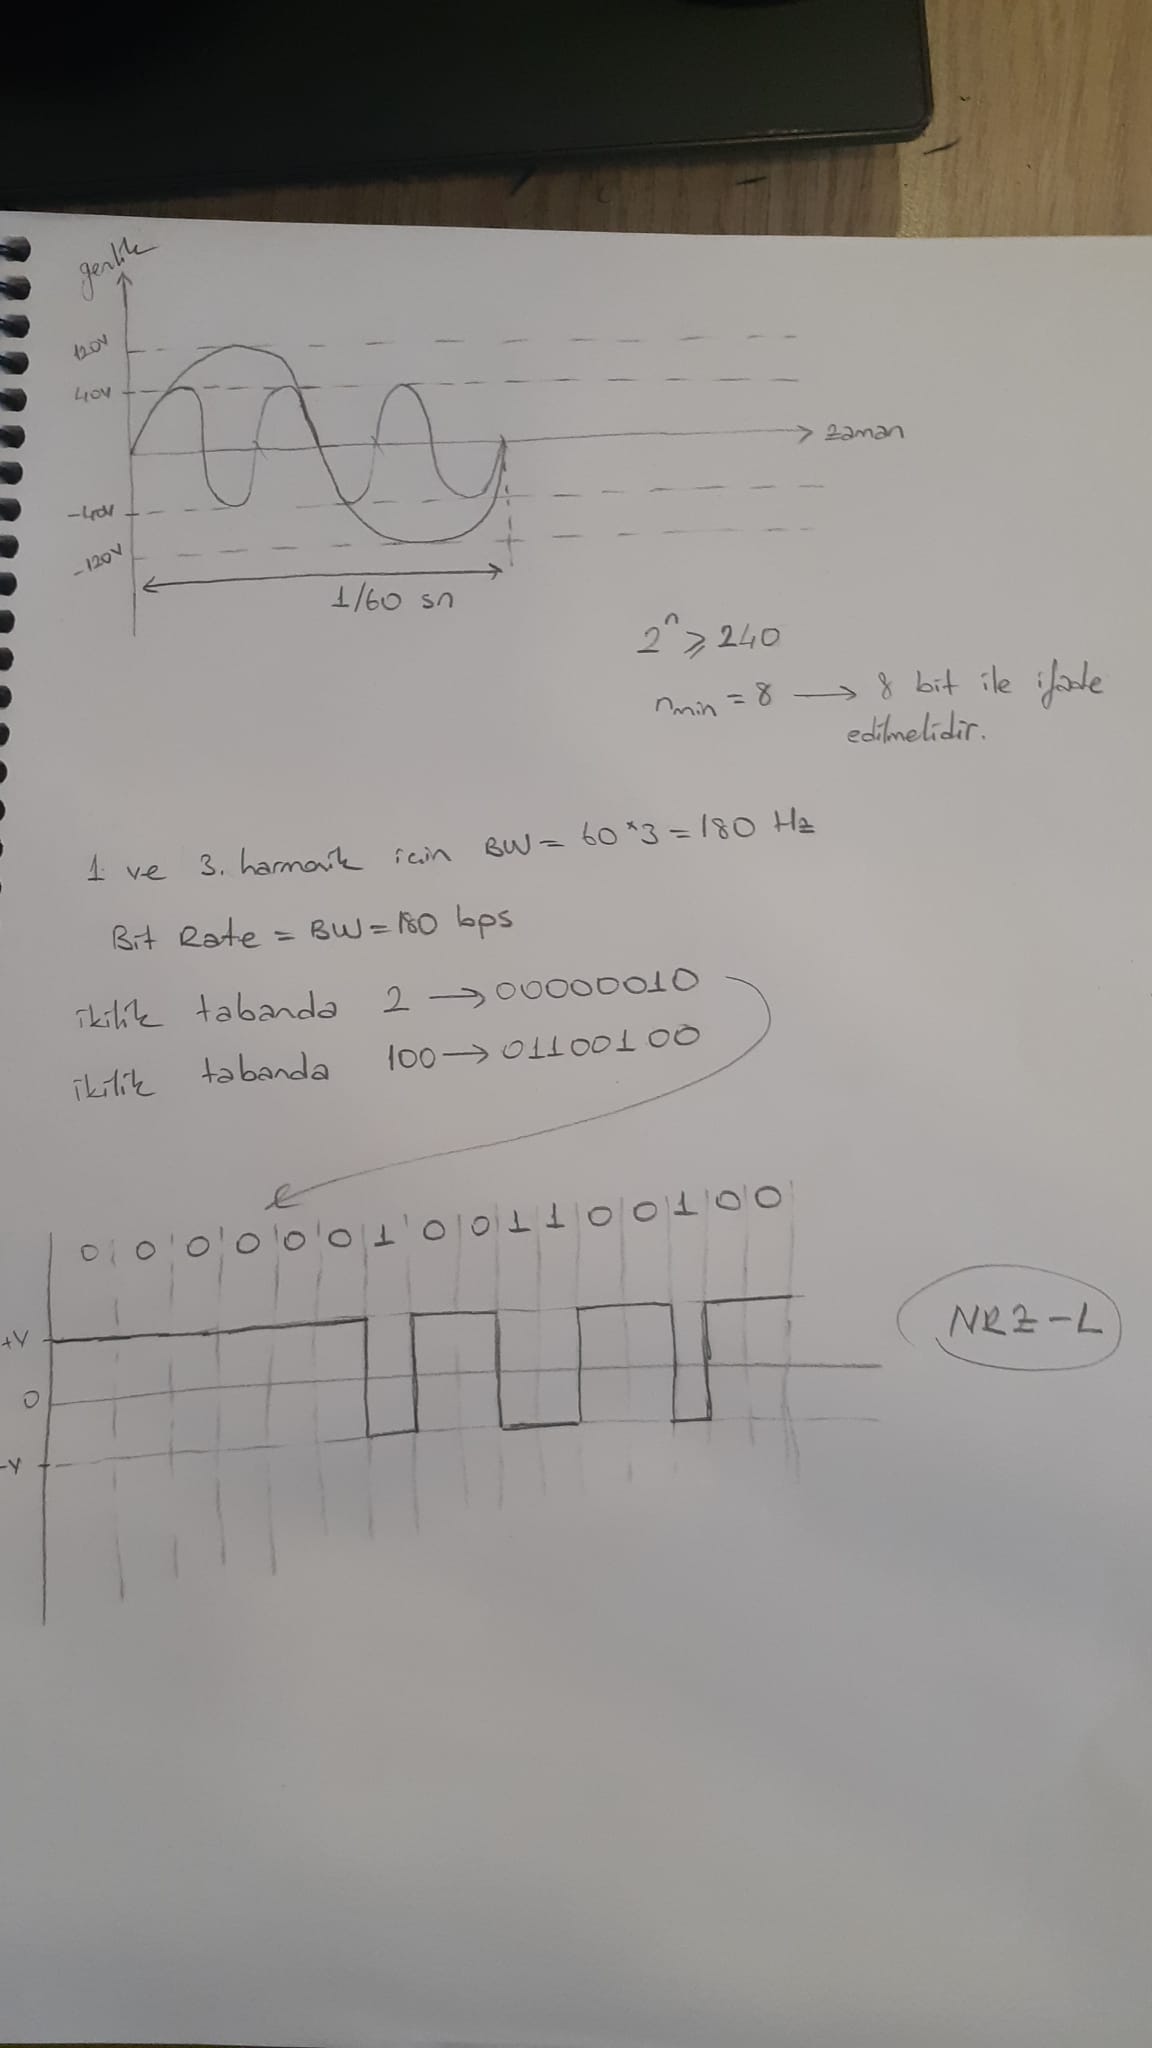 genlik
120V
40V
zaman
-40V
-120V
1/60 sn
2^n ≥ 240
nmin = 8 → 8 bit ile ifade
edilmelidir.
1 ve 3. harmonik için BW = 60*3 = 180 Hz
Bit Rate = BW = 180 bps
ikilik tabanda 2 → 00000010
ikilik tabanda 100 → 01100100
0 0 0 0 0 0 1 0 0 1 1 0 0 1 0 0
+V
NRZ-L
0
-V